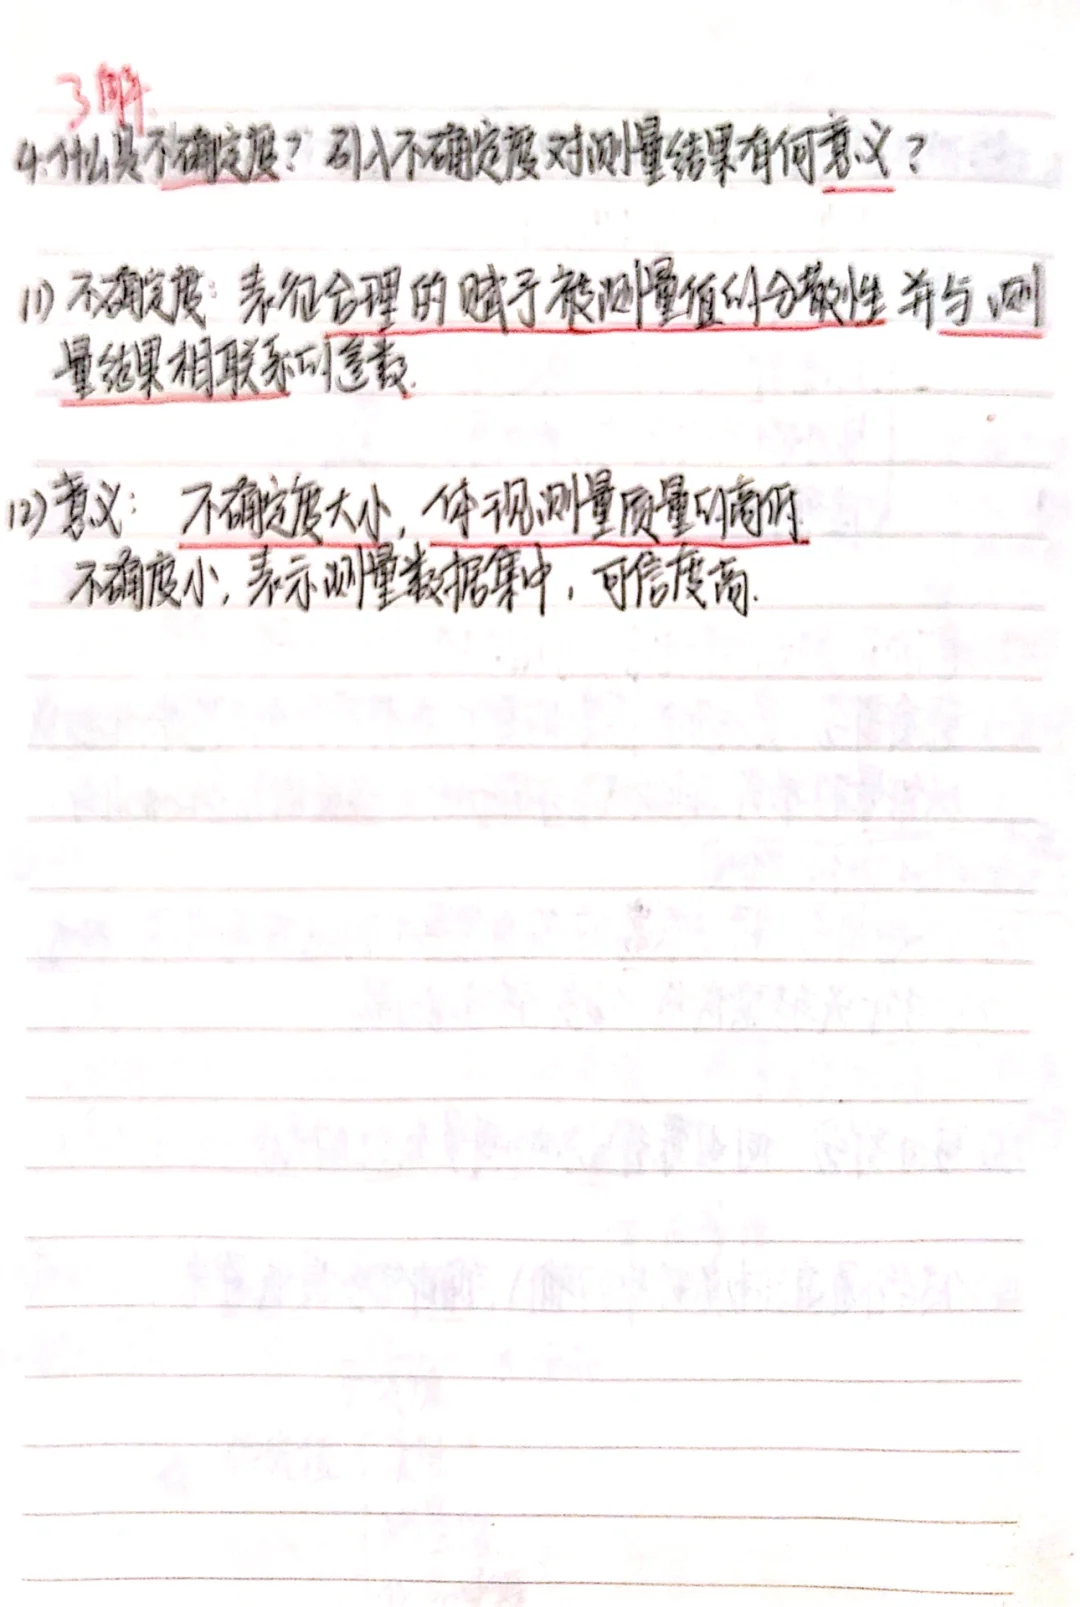 了解
4.什么是不确定度？引入不确定度对测量结果有何意义？
(1) 不确定度：表征合理的赋予被测量值的分散性 并与测
量结果相联系的参数.
(2) 意义： 不确定度大小，体现测量质量的高低.
不确度小，表示测量数据集中，可信度高.